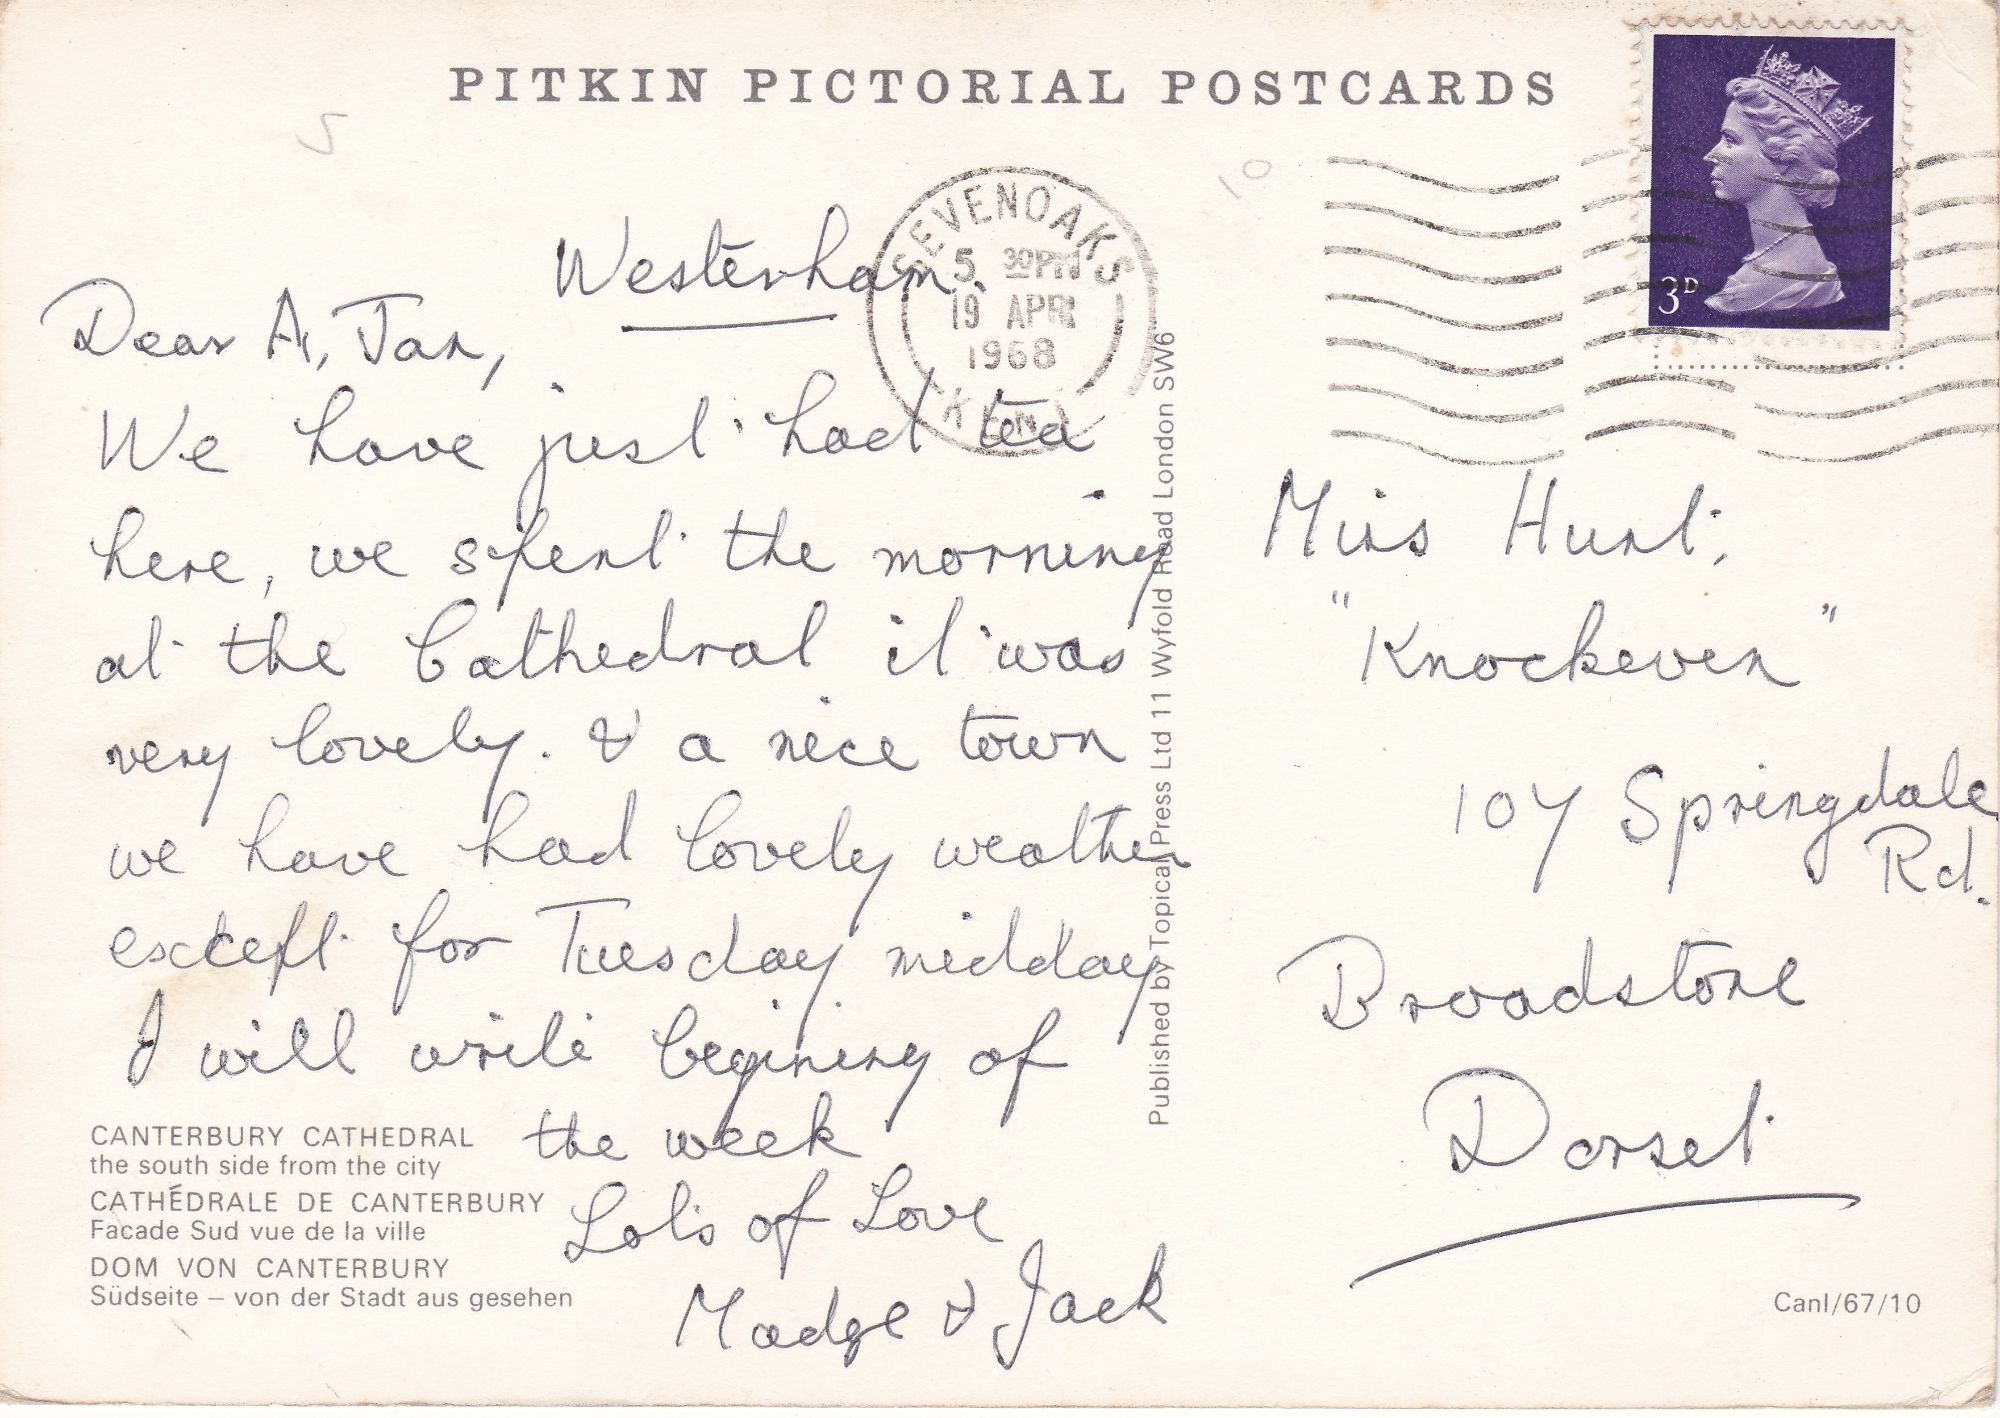 PITKIN PICTORIAL POSTCARDS
5
10
SEVENOAKS
5 30PM
19 APR
1968
KENT
3D
Westerham.
Dear A, Jan,
We have just had tea
here, we spent the morning
at the Cathedral it was
very lovely. & a nice town
we have had lovely weather
except for Tuesday midday
I will write begining of
the week
Lots of Love
Madge & Jack
CANTERBURY CATHEDRAL
the south side from the city
CATHÉDRALE DE CANTERBURY
Facade Sud vue de la ville
DOM VON CANTERBURY
Südseite – von der Stadt aus gesehen
Published by Topical Press Ltd 11 Wyfold Road London SW6
Miss Hunt,
"Knockeven"
107 Springdale
Rd.
Broadstone
Dorset
Canl/67/10